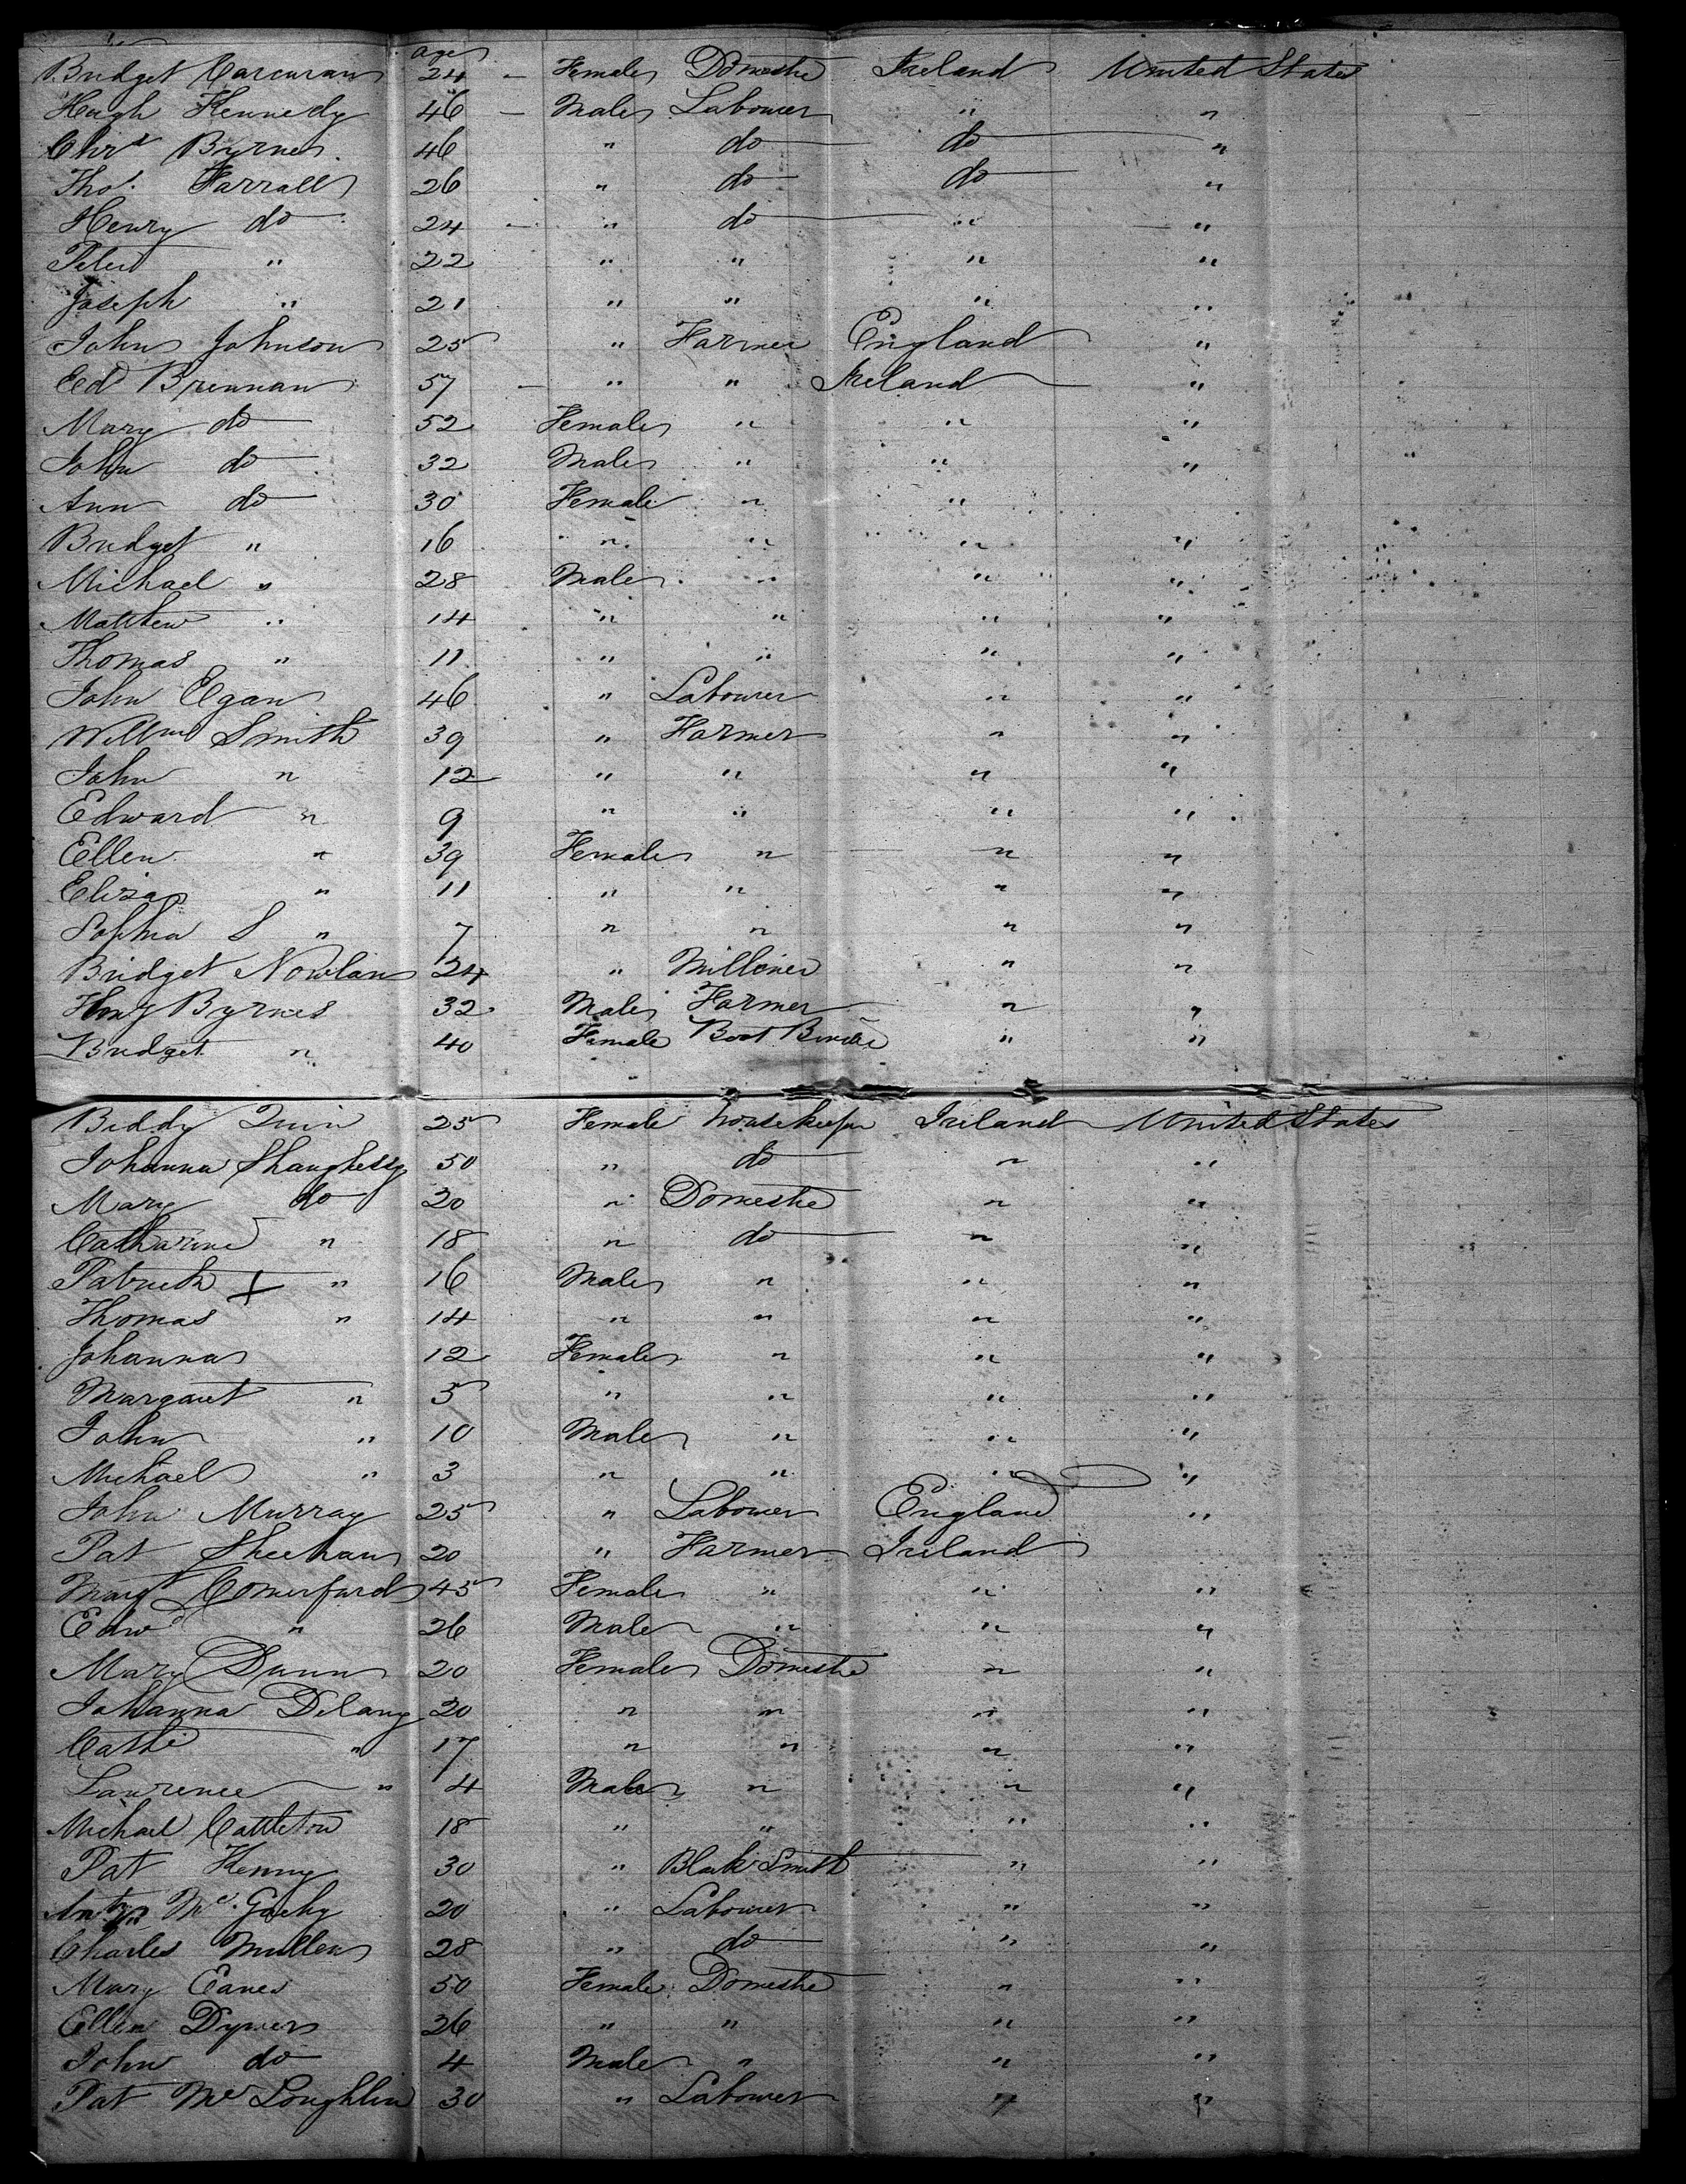 age
Bridget Corcoran 24 - Female Domestic Ireland United States
Hugh Kennedy 46 - Male Labourer " "
Chrs Byrnes 46 " do do "
Thos. Farrall 26 " do do "
Henry do 24 - " do " "
Peter " 22 " " " "
Joseph " 21 " " " "
John Johnson 25 " Farmer England "
Ed Brennan 57 - " " Ireland "
Mary do 52 Female " " "
John do 32 Male " " "
Ann do 30 Female " "
Bridget " 16 " " " "
Michael " 28 Male " " "
Matthew " 14 " " " "
Thomas " 11 " " " "
John Egan 46 " Labourer " "
Willm Smith 39 " Farmer " "
John " 12 " " " "
Edward " 9 " " " "
Ellen " 39 Female " " "
Eliza " 11 " " " "
Sophia S " 7 " " " "
Bridget Nowlan 24 " Milliner " "
Heny Byrnes 32 Male Farmer " "
Bridget " 40 Female Boot Binder " "
Biddy Quin 25 Female housekeeper Ireland United States
Johanna Shaughessy 50 " do " "
Mary do 20 " Domestic " "
Catharine " 18 " do " "
Patrick + " 16 Male " " "
Thomas " 14 " " " "
Johanna 12 Female " " "
Margaret " 5 " " " "
John " 10 Male " " "
Michael " 3 " " " "
John Murray 25 " Labourer England "
Pat Sheehan 20 " Farmer Ireland
Margt Comerford 45 Female " " "
Edwd " 26 Male " " "
Mary Dunn 20 Female Domestic " "
Johanna Delany 20 " " " "
Cathe " 17 " " " "
Lawrence " 4 Male " " "
Michael Cattleton 18 " " " "
Pat Kenny 30 " Black Smith " "
Mc 20 " Labourer " "
Charles Mullen 28 " do " "
Mary Eanes 50 Female Domestic " "
Ellen Dywer 26 " " " "
John do 4 Male " " "
Pat Mc Loughlin 30 " Labourer " "